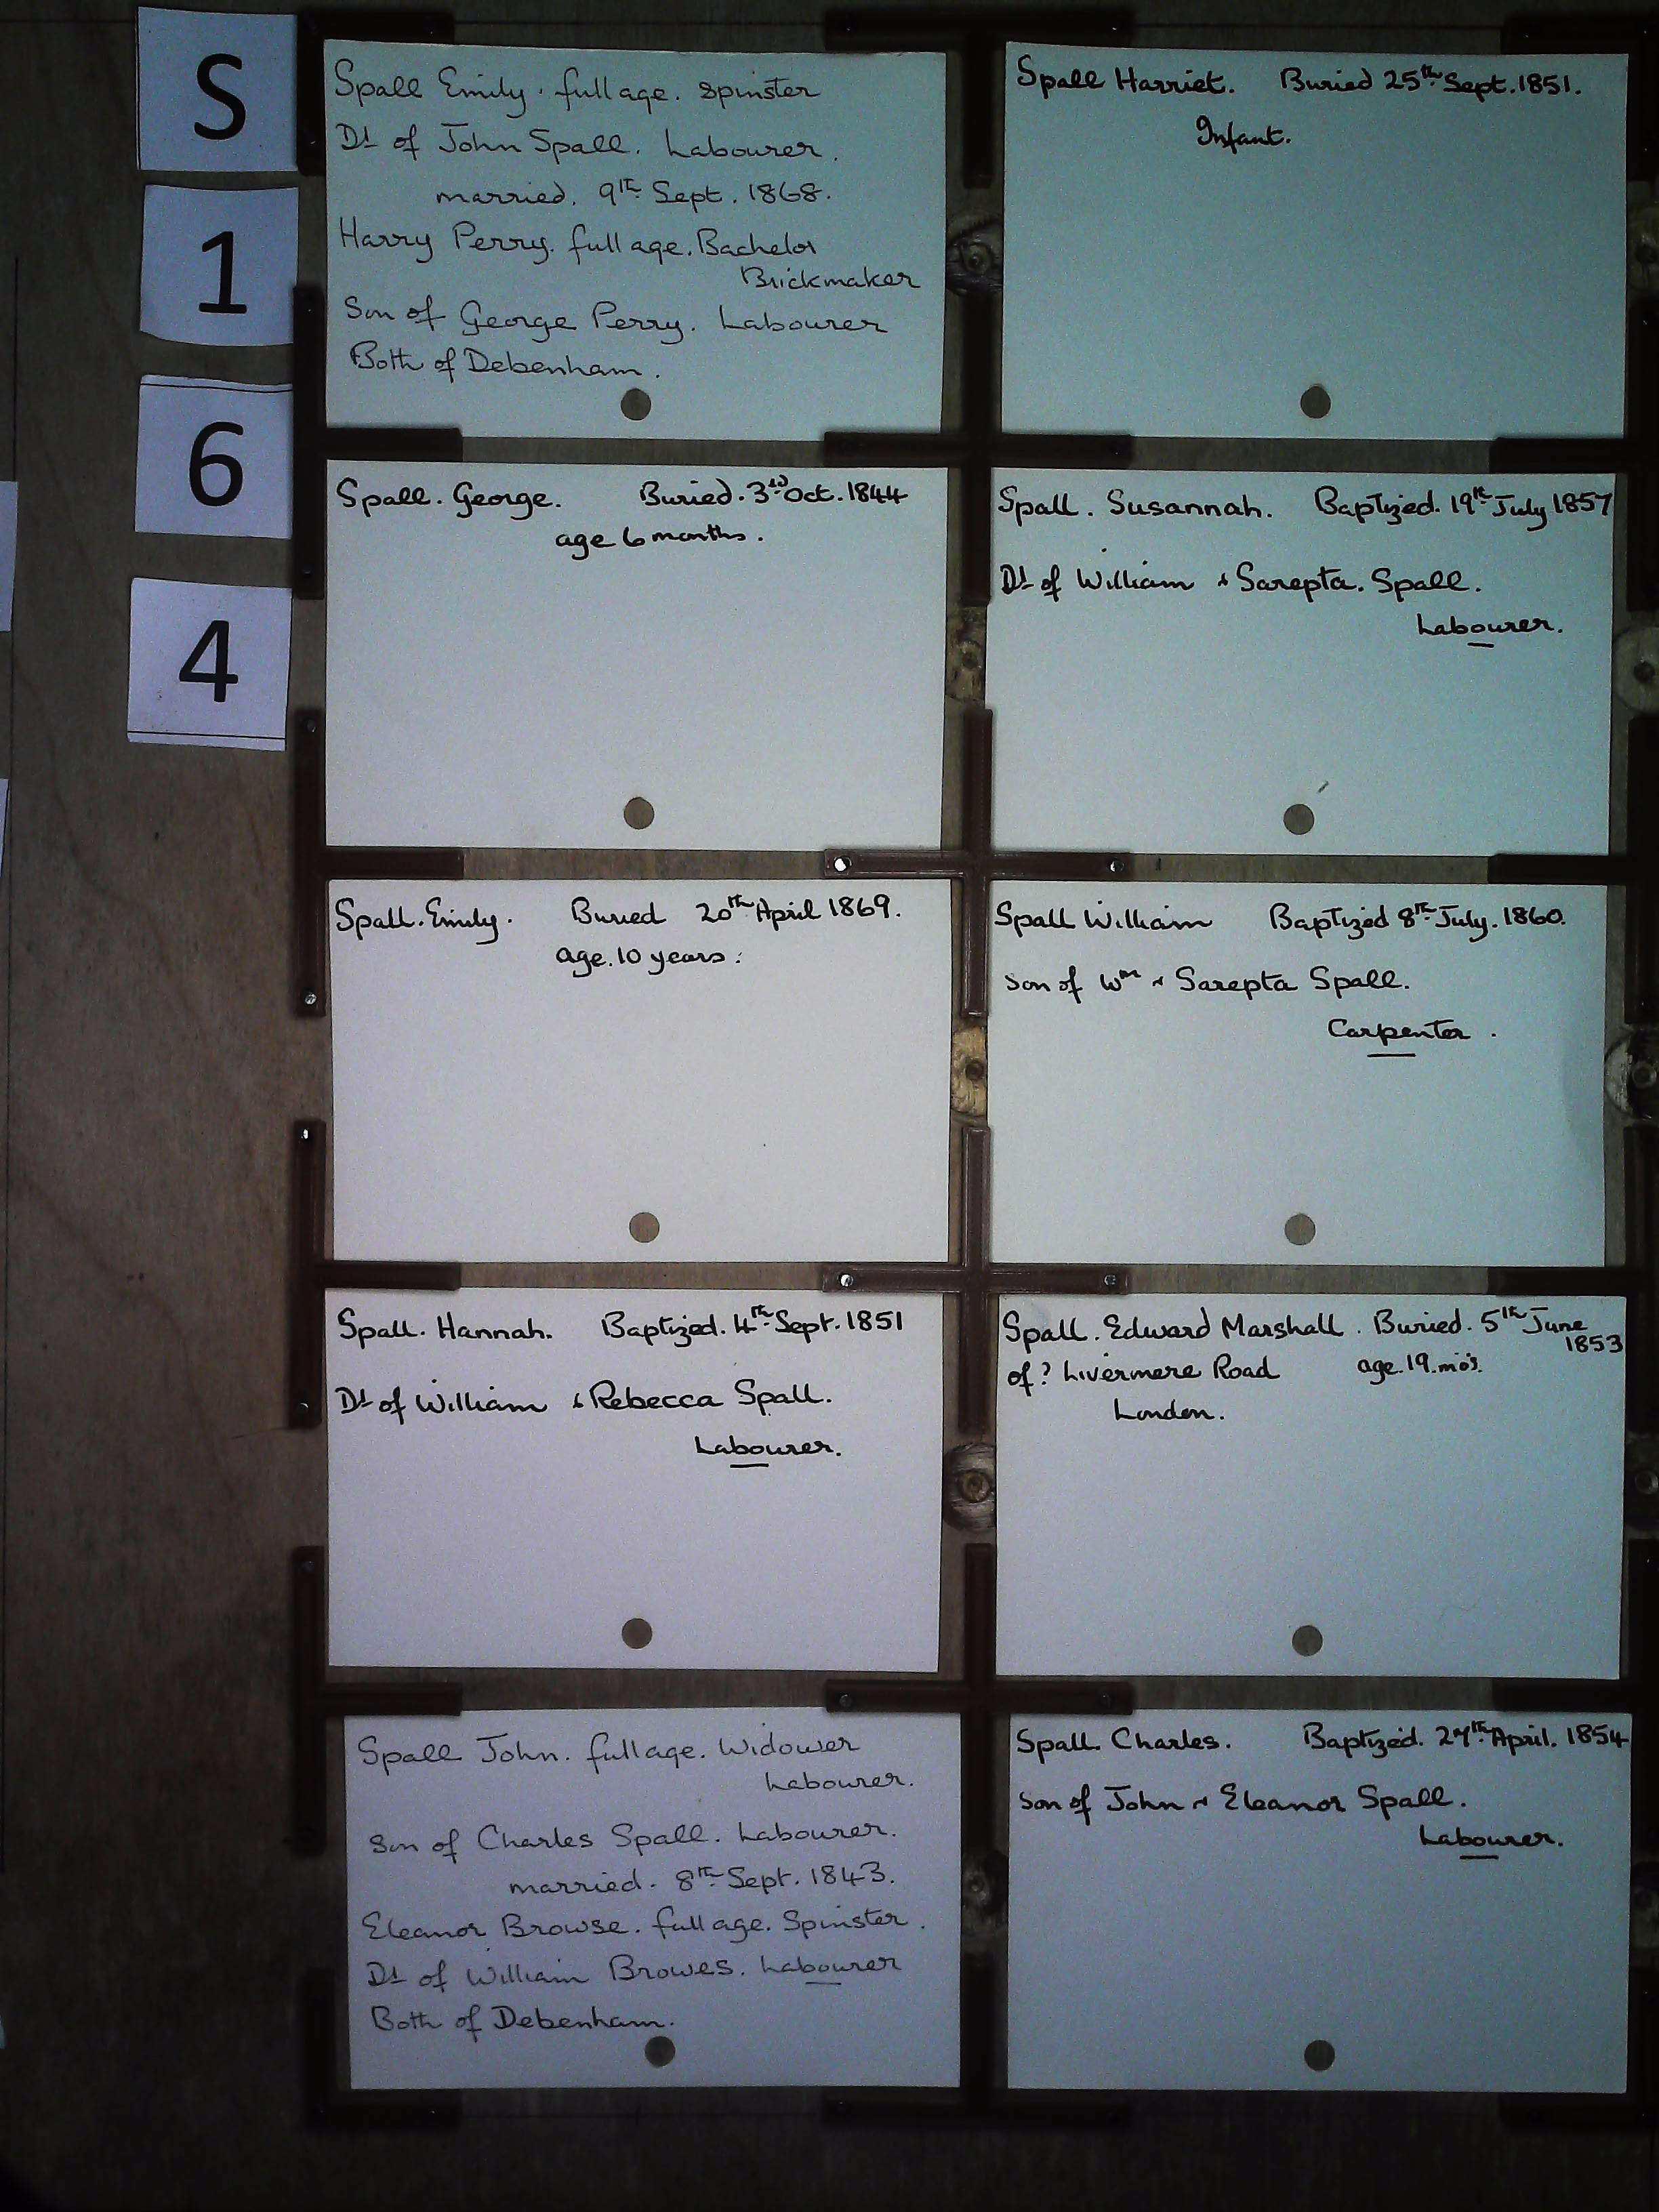 S
1
6
4
Spall Emily. full age. Spinster
Dt of John Spall. Labourer.
married. 9th Sept. 1868.
Harry Perry. full age. Bachelor
Brickmaker
Son of George Perry. Labourer
Both of Debenham.
Spall Harriet. Buried 25th Sept. 1851.
Infant.
Spall. George. Buried. 3rd Oct. 1844
age 6 months.
Spall. Susannah. Baptized. 19th July 1857
Dt of William & Sarepta. Spall.
Labourer.
Spall. Emily. Buried 20th April 1869.
age. 10 years.
Spall William Baptized 8th July. 1860.
Son of Wm & Sarepta Spall.
Carpenter.
Spall. Hannah. Baptized. 4th Sept. 1851
Dt of William & Rebecca Spall.
Labourer.
Spall. Edward Marshall. Buried. 5th June
1853
of? Livermere Road age. 19. mos.
London.
Spall John. full age. Widower
Labourer.
Son of Charles Spall. Labourer.
married. 8th Sept. 1843.
Eleanor Browse. full age. Spinster.
Dt of William Browes. Labourer
Both of Debenham.
Spall. Charles. Baptized. 27th April. 1854
Son of John & Eleanor Spall.
Labourer.